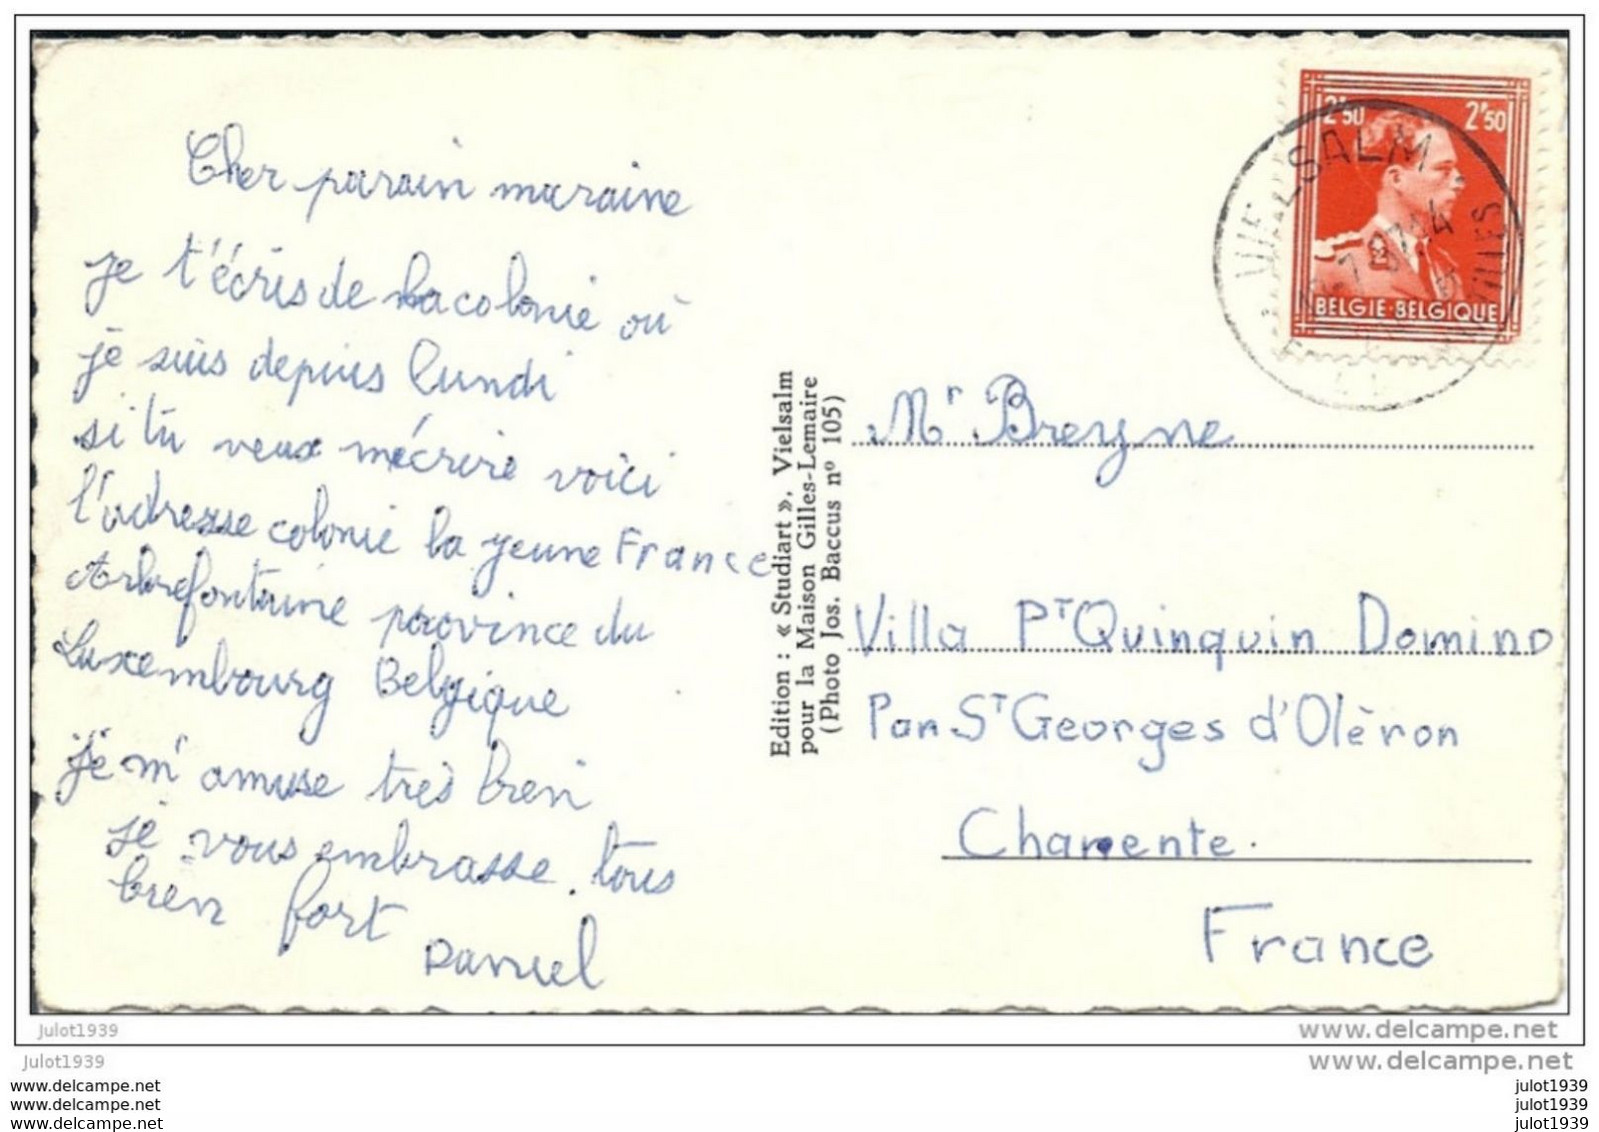 Cher parain maraine
je t'écris de la colonie où
je suis depuis lundi
si tu veux mécrire voici
l'adresse colonie la jeune France
Arbrefontaine province du
Luxembourg Belgique
je m'amuse très bien
je vous embrasse tous
bien fort
Daniel
Edition : « Studiart ». Vielsalm
pour la Maison Gilles-Lemaire
(Photo Jos. Baccus nº 105)
2'50 2'50
BELGIE·BELGIQUE
VIELSALM
Mr Breyne
Villa PT Quinquin Domino
Par ST Georges d'Oléron
Charente.
France
Julot1939
www.delcampe.net
Julot1939
www.delcampe.net
www.delcampe.net
www.delcampe.net
www.delcampe.net
julot1939
julot1939
julot1939